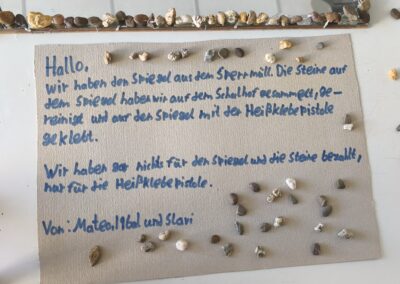 Hallo,
wir haben den Spiegel aus dem Sperrmüll. Die Steine auf
dem Spiegel haben wir auf dem Schulhof gesammelt, ge-
reinigt und auf den Spiegel mit der Heißklebepistole
geklebt.
Wir haben gar nichts für den Spiegel und die Steine bezahlt,
nur für die Heißklebepistole.
Von: Mateo, Iqbal und Slavi